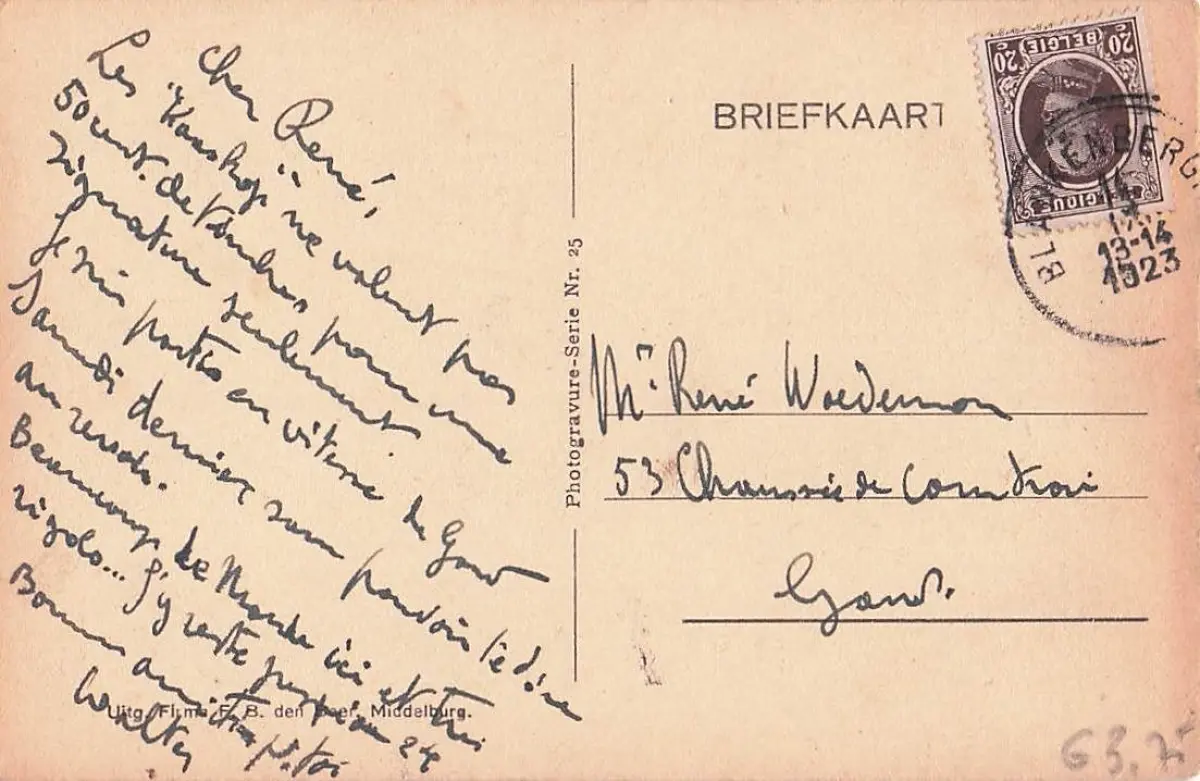 Cher René,
Les "Kaashop" ne valent pas
50 cent. de timbres pour une
signature seulement
Je suis parti en vitesse de Gand
Samedi dernier sans pouvoir te dire
au revoir.
Beaucoup de Monde ici et très
rigolo... J'y reste jusqu'au 24
Bonnes amitiés p. toi
Walter
Uitg. Firma F. B. den Boer, Middelburg.
Photogravure-Serie Nr. 25
BRIEFKAART
20 BELGIE 20
BELGIQUE
BLANKENBERG
13-14
1923
Mr René Woedemon
53 Chaussée de Courtrai
Gand.
63.75